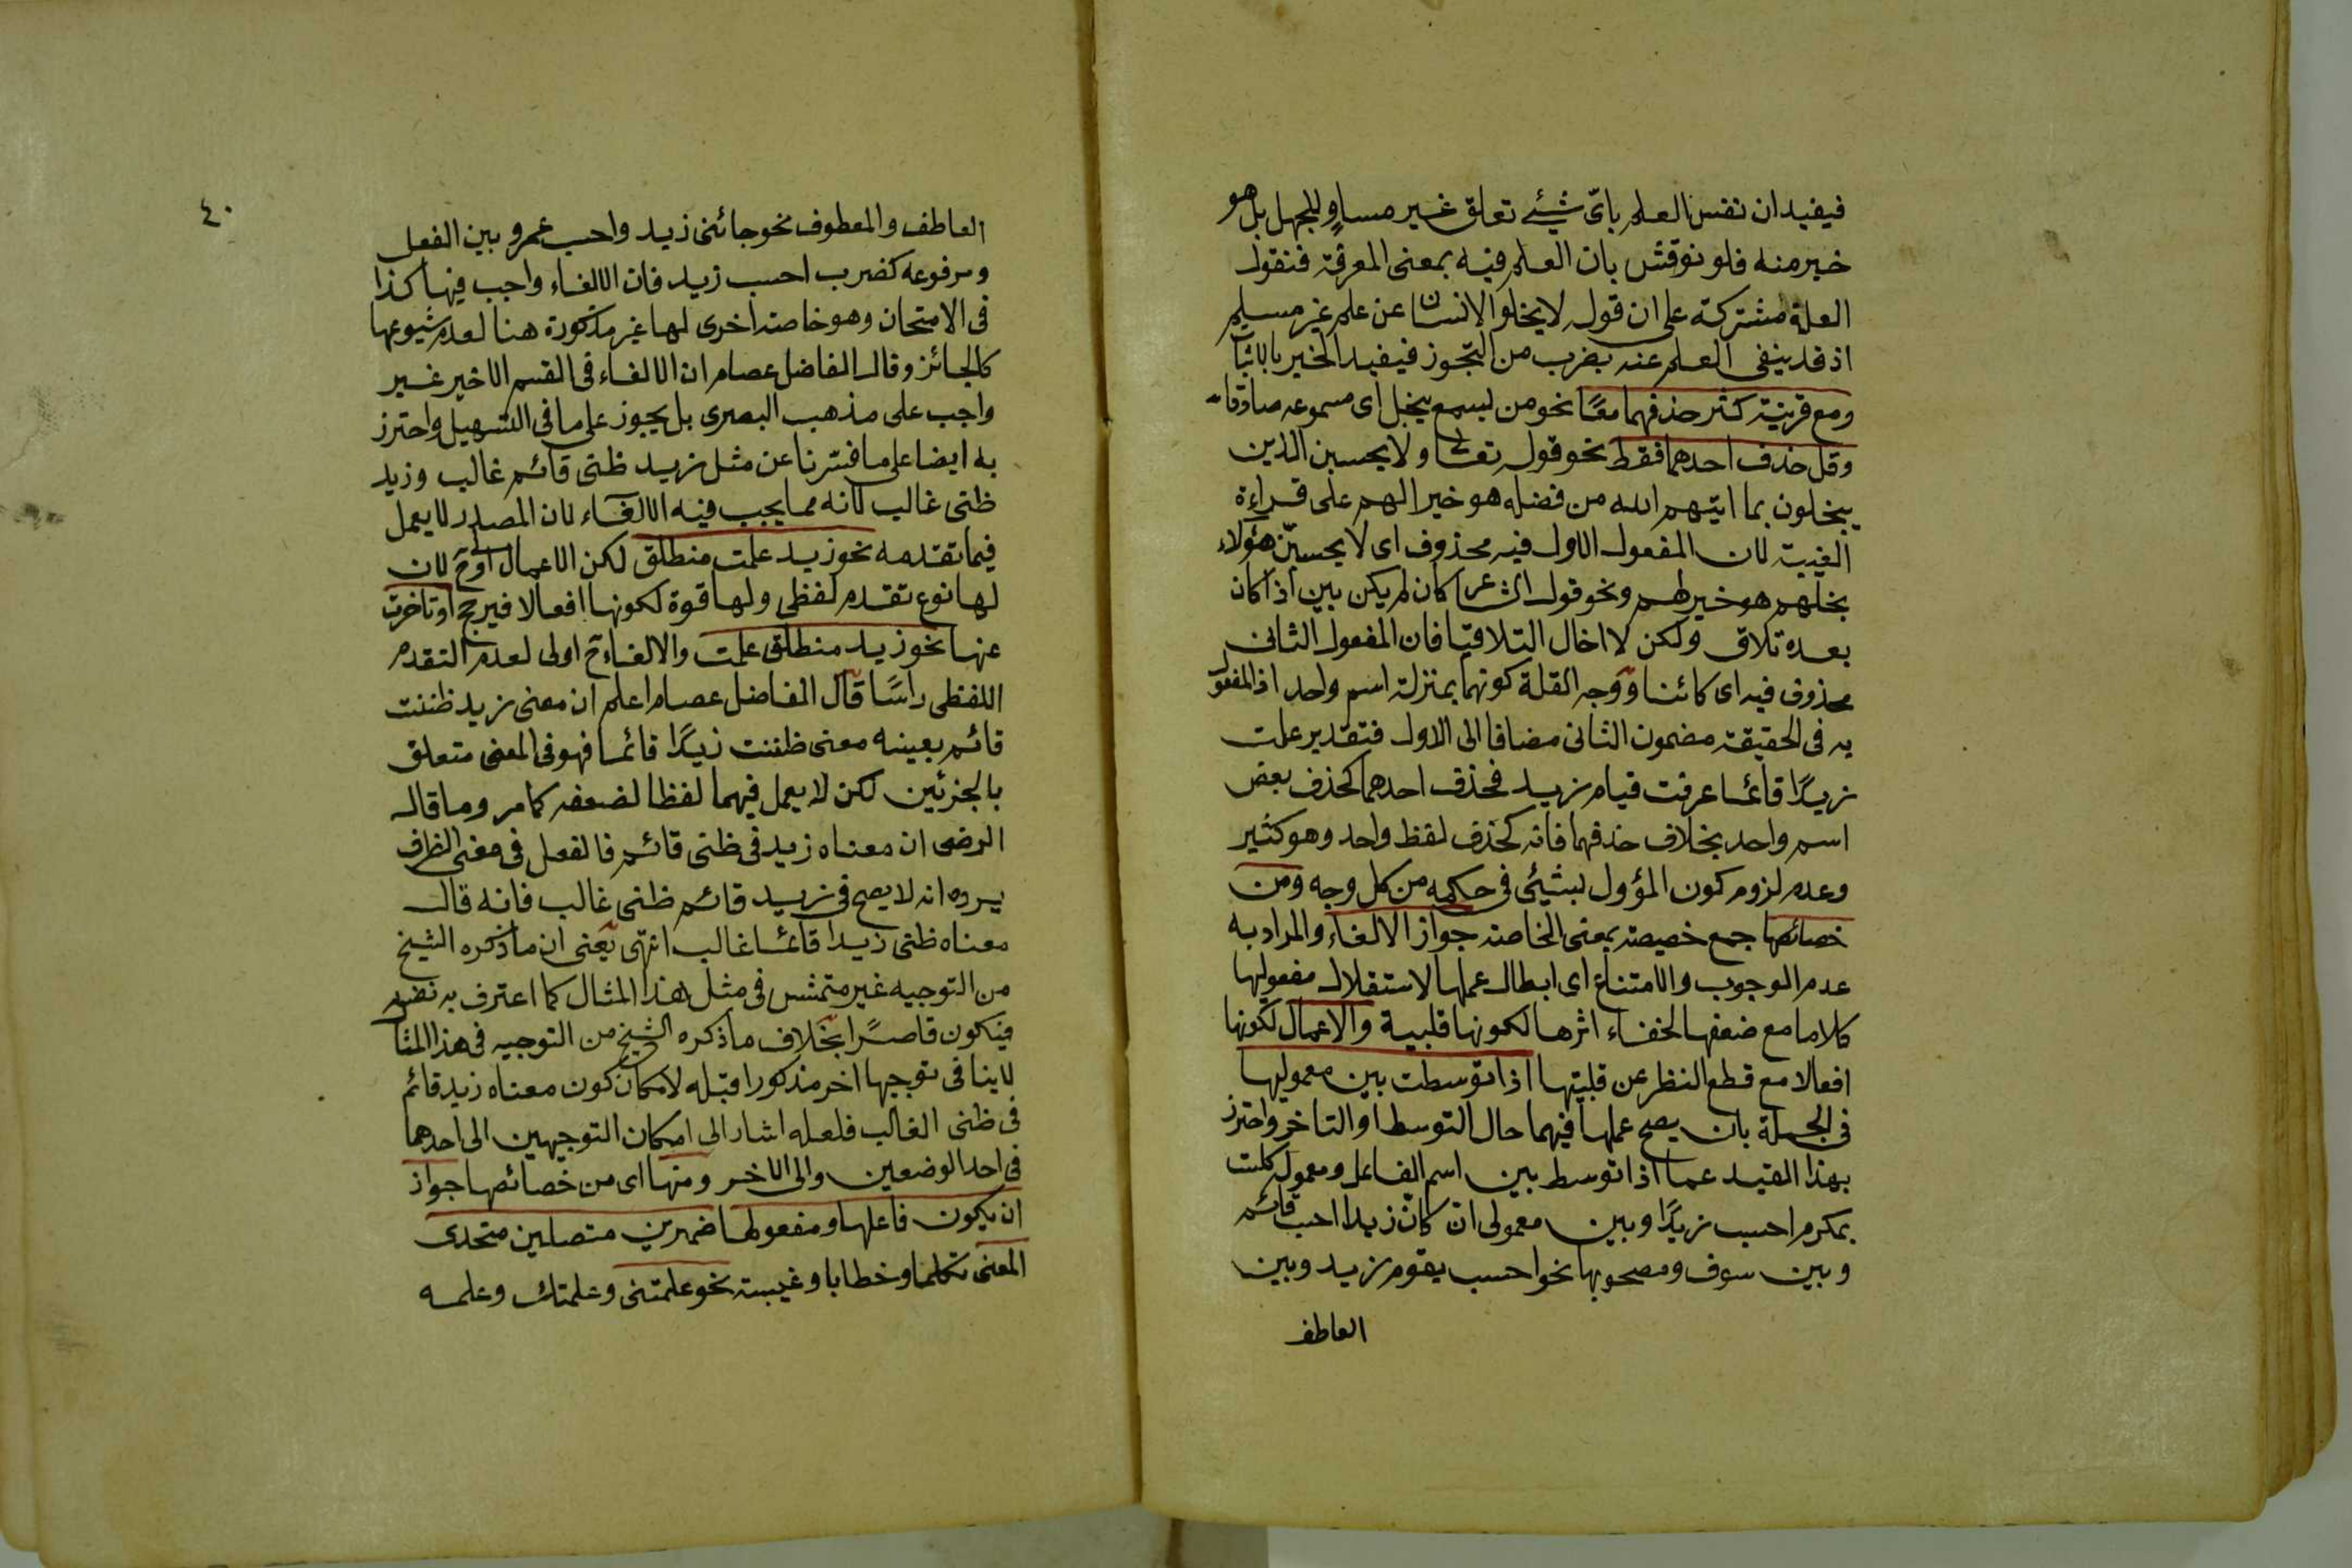 فيفيد ان نفس العلم باىّ شيئ تعلق غير مساوٍ للجهل بل هو
خير منه فلو نوقش بان العلم فيه بمعنى المعرفة فنقول
العلة مشتركة على ان قوله لا يخلو الانسان عن علم غير مسلم
اذ قد ينفى العلم عنه بضرب من التجوز فيفيد الخير بالاثبات
ومع قرينة كثر حذفهما معًا نحو من يسمع يخل اى مسموعه صادقا
وقل حذف احدهما فقط نحو قوله تعالى ولا يحسبن الذين
يبخلون بما اتيهم الله من فضله هو خيرا لهم على قراءة
الغيبة لان المفعول الاول فيه محذوف اى لا يحسبنّ هؤلاء
بخلهم هو خير لهم ونحو قول الشاعر كان لم يكن بين اذا كان
بعده تلاق ولكن لا اخال التلاقيا فان المفعول الثانى
محذوف فيه اى كائنا ووجه القلة كونهما بمنزلة اسم واحد اذ المفعول
به فى الحقيقة مضمون الثانى مضافا الى الاول فتقدير علمت
زيدًا قائما عرفت قيام زيد فحذف احدهما كحذف بعض
اسم واحد بخلاف حذفهما فانه كحذف لفظ واحد وهو كثير
وعدم لزوم كون المؤول بشيئ فى حكمه من كل وجه ومن
خصائصها جمع خصيصة بمعنى الخاصة جواز الالغاء والمراد به
عدم الوجوب والامتناع اى ابطال عملها لاستقلال مفعوليها
كلاما مع ضعفها لخفاء اثرها لكونها قلبية والاعمال لكونها
افعالا مع قطع النظر عن قلبيتها اذا توسطت بين معموليها
فى الجملة بان يصح عملها فيهما حال التوسط او التاخر واحترز
بهذا القيد عما اذا توسط بين اسم الفاعل ومعموله كلست
بمكرم احسب زيدًا وبين معمولى ان كان زيدا احسب قائم
وبين سوف ومصحوبها نحو احسب يقوم زيد وبين
العاطف
٤٠
العاطف والمعطوف نحو جائنى زيد واحسب عمرو بين الفعل
ومرفوعه كضرب احسب زيد فان الالغاء واجب فيها كذا
فى الامتحان وهو خاصة اخرى لها غير مذكورة هنا لعدم شيوعها
كالجائز وقال الفاضل عصام ان الالغاء فى القسم الاخير غير
واجب على مذهب البصرى بل يجوز على ما فى التسهيل واحترز
به ايضا على ما فسرنا عن مثل زيد ظنى قائم غالب وزيد
ظنى غالب لانه مما يجب فيه الالغاء لان المصدر لا يعمل
فيما تقدمه نحو زيد علمت منطلق لكن الاعمال اولى ح لان
لها نوع تقدم لفظى ولها قوة لكونها افعالا فيرجح او تاخرت
عنها نحو زيد منطلق علمت والالغاء ح اولى لعدم التقدم
اللفظى راسًا قال الفاضل عصام اعلم ان معنى زيد ظننت
قائم بعينه معنى ظننت زيدًا قائما فهو فى المعنى متعلق
بالجزئين لكن لا يعمل فيهما لفظا لضعفه كما مر وما قاله
الرضى ان معناه زيد فى ظنى قائم فالفعل فى معنى الظرف
يرده انه لا يصح فى زيد قائم ظنى غالب فانه قال
معناه ظنى زيدا قائما غالب انتهى يعنى ان ما ذكره الشيخ
من التوجيه غير متمش فى مثل هذا المثال كما اعترف به نفسه
فيكون قاصرًا بخلاف ما ذكره الشيخ من التوجيه فى هذا المثال
لا ينافى توجيها اخر مذكورا قبله لامكان كون معناه زيد قائم
فى ظنى الغالب فلعله اشار الى امكان التوجيهين الى احدهما
فى احد الوضعين والى الاخر ومنها اى من خصائصها جواز
ان يكون فاعلها ومفعولها ضميرين متصلين متحدى
المعنى تكلما او خطابا او غيبة نحو علمتنى وعلمتك وعلمه